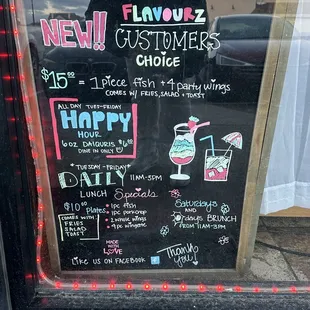 FLAVOURZ
NEW!! CUSTOMERS
CHOICE
$15.00 = 1 piece fish + 4 party wings
COMES W/ FRIES, SALAD + TOAST
ALL DAY TUES-FRIDAY
HAPPY
HOUR
6 oz DAIQURIS $6.00
DINE IN ONLY
*TUESDAY-FRIDAY*
DAILY 11AM-3PM
LUNCH Specials
$10.00 Plates
COMES WITH
FRIES
SALAD
TOAST
1pc fish
1pc porkchop
2 whole wings
4pc wingette
Saturdays
AND
days BRUNCH
FROM 11AM-3PM
MADE
WITH
LOVE
Thank
you!
LIKE US ON FACEBOOK